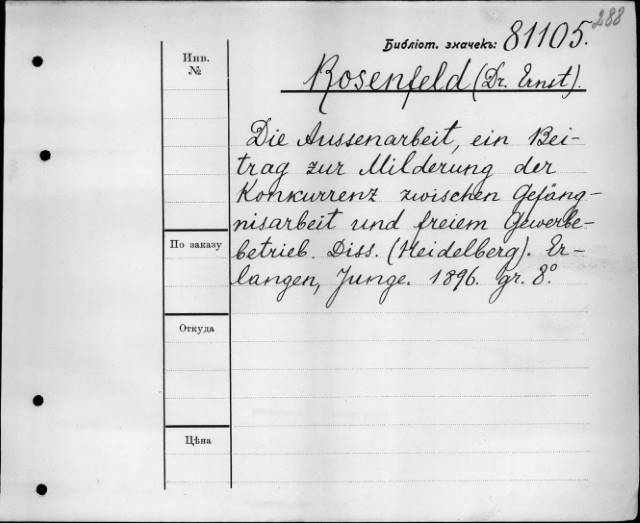 288
Библіот. значекъ: 81105.
Инв.
№
Rosenfeld (Dr. Ernst).
Die Aussenarbeit, ein Bei-
trag zur Milderung der
Konkurrenz zwischen Gefäng-
nisarbeit und freiem Gewerbe-
По заказу
betrieb. Diss. (Heidelberg). Er-
langen, Junge. 1896. gr. 8°.
Откуда
Цѣна